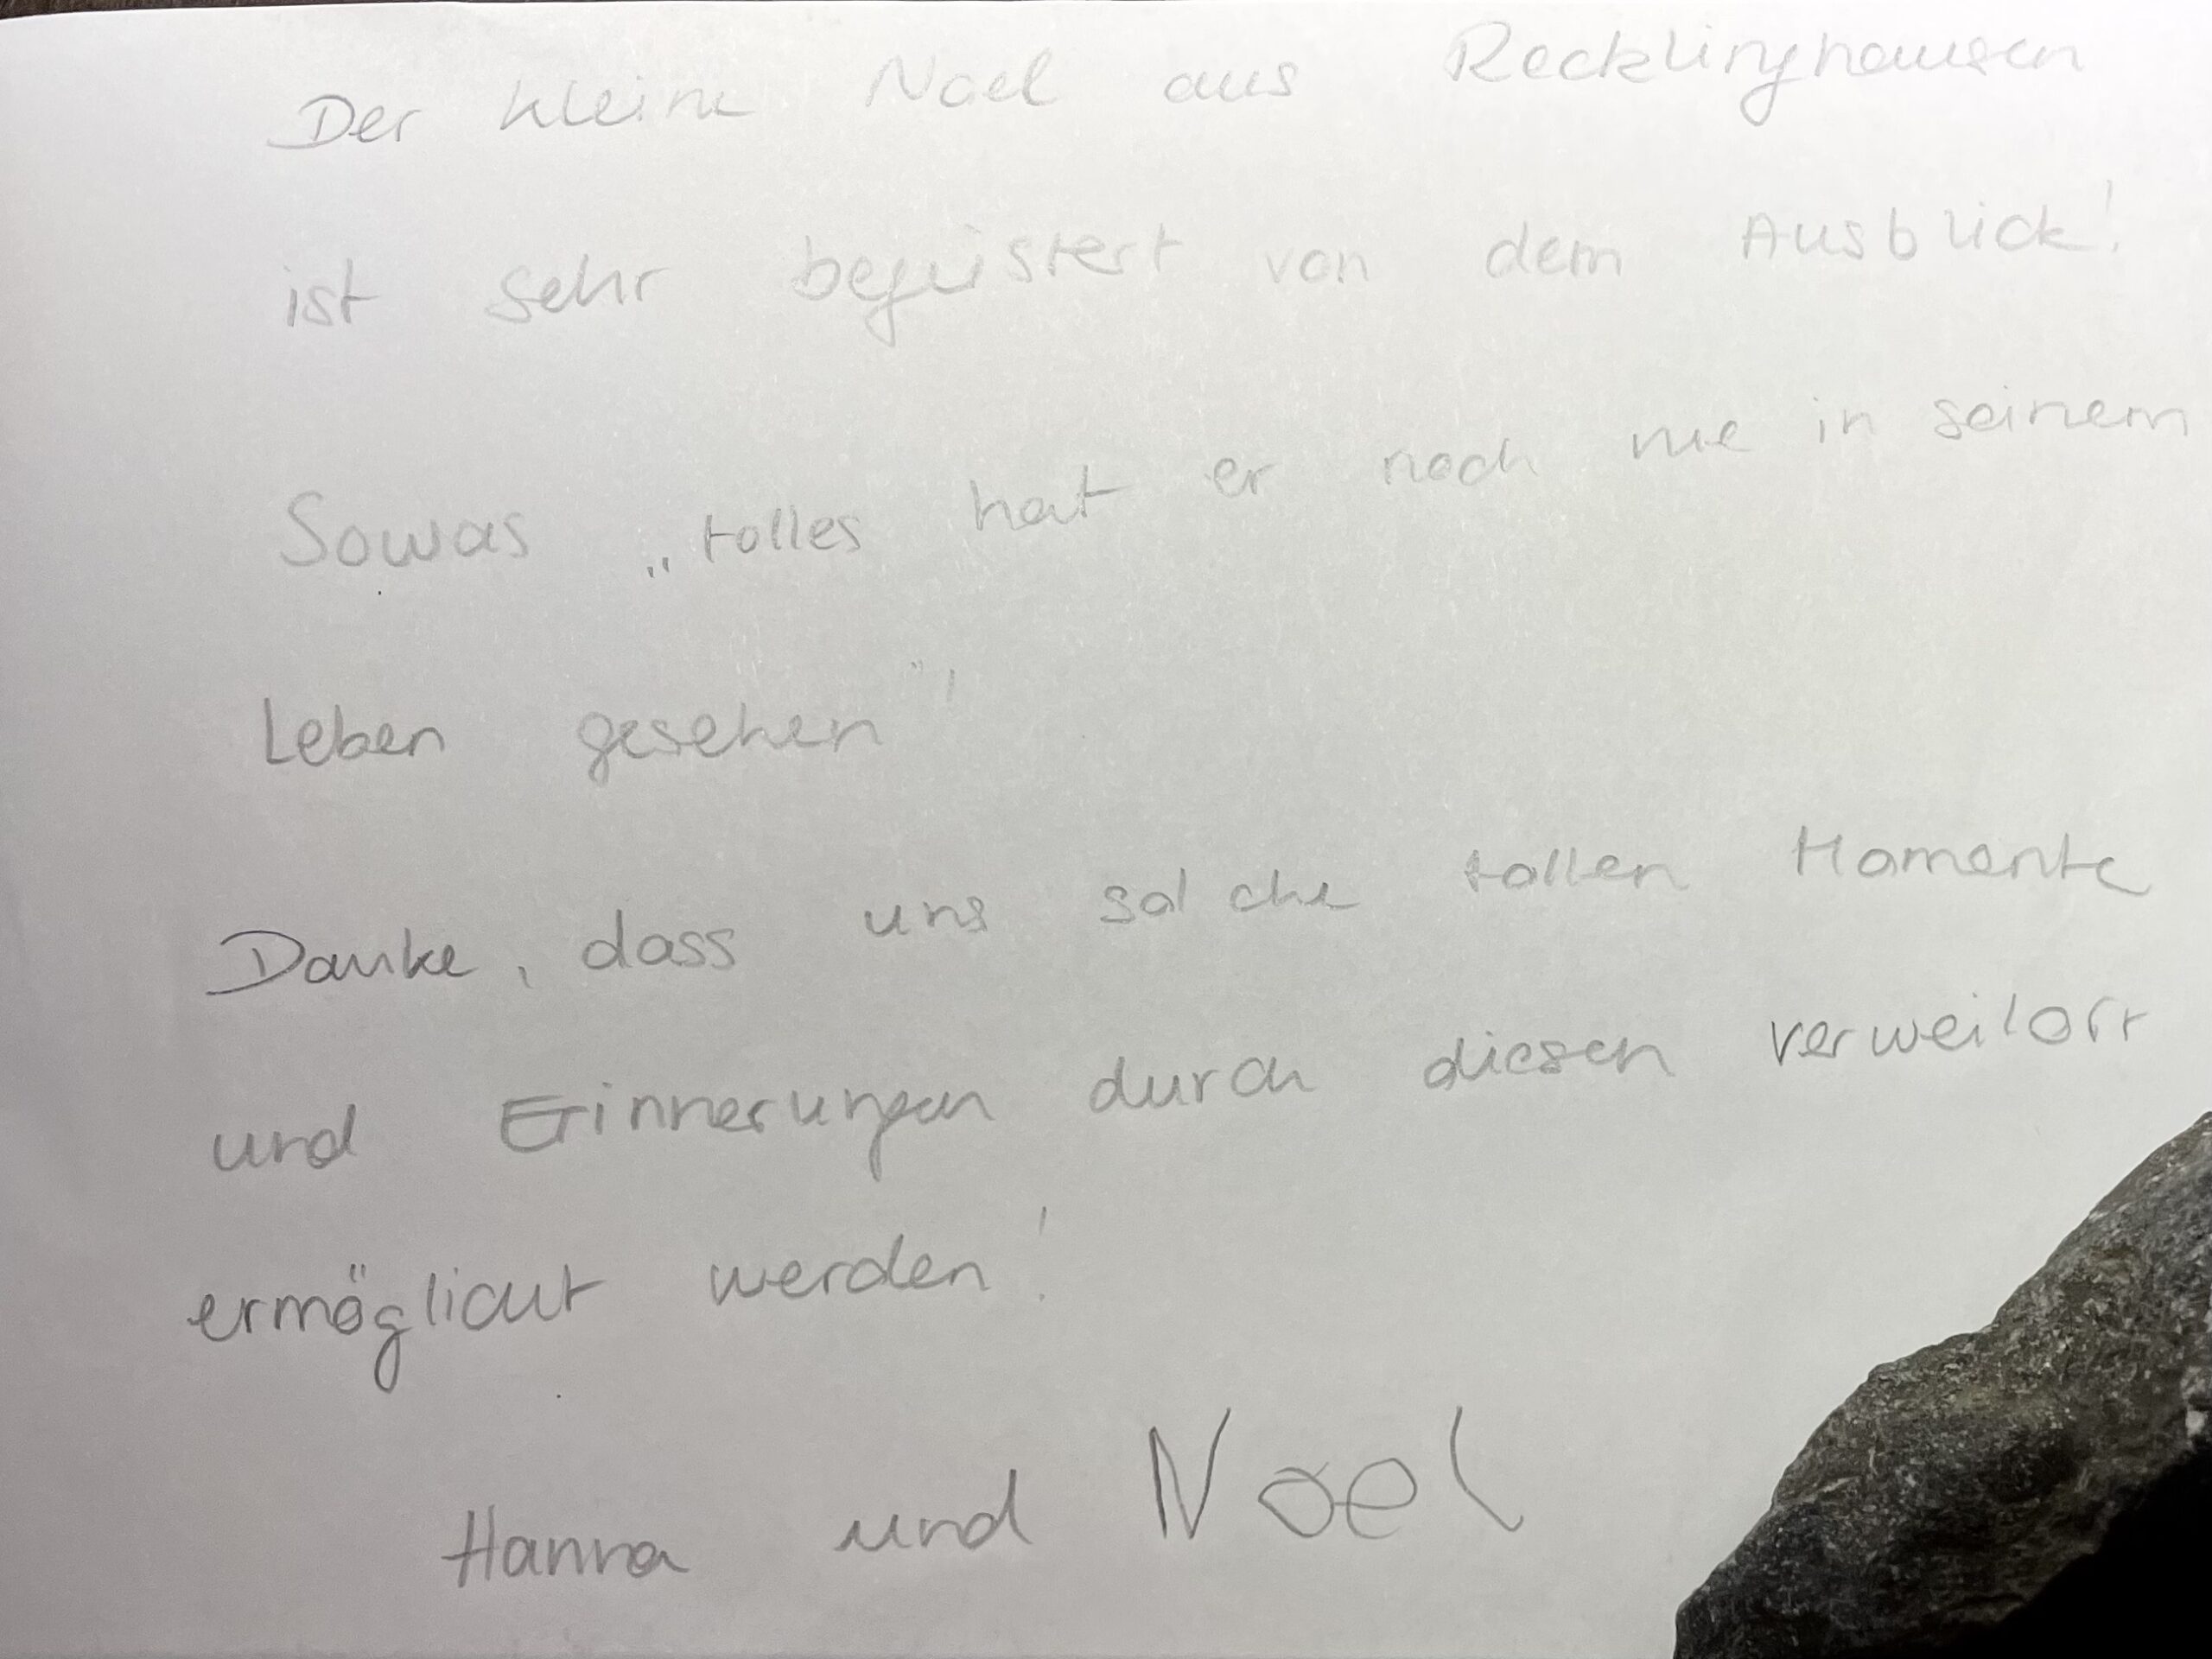 Der kleine Noel aus Recklinghausen
ist sehr begeistert von dem Ausblick!
Sowas „tolles hat er noch nie in seinem
Leben gesehen"!
Danke, dass uns solche tollen Momente
und Erinnerungen durch diesen verweilort
ermöglicht werden!
Hanna und Noel